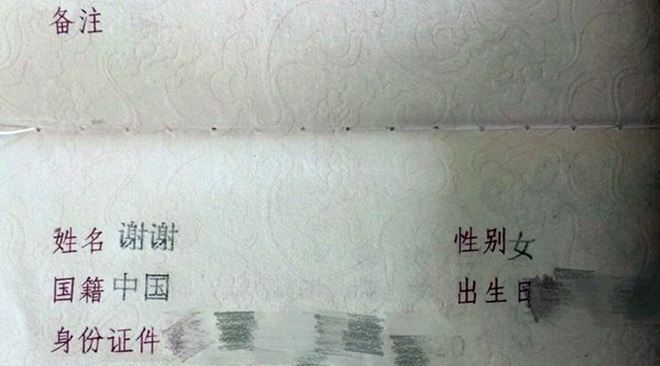 备注
姓名 谢谢 性别 女
国籍 中国 出生日
身份证件